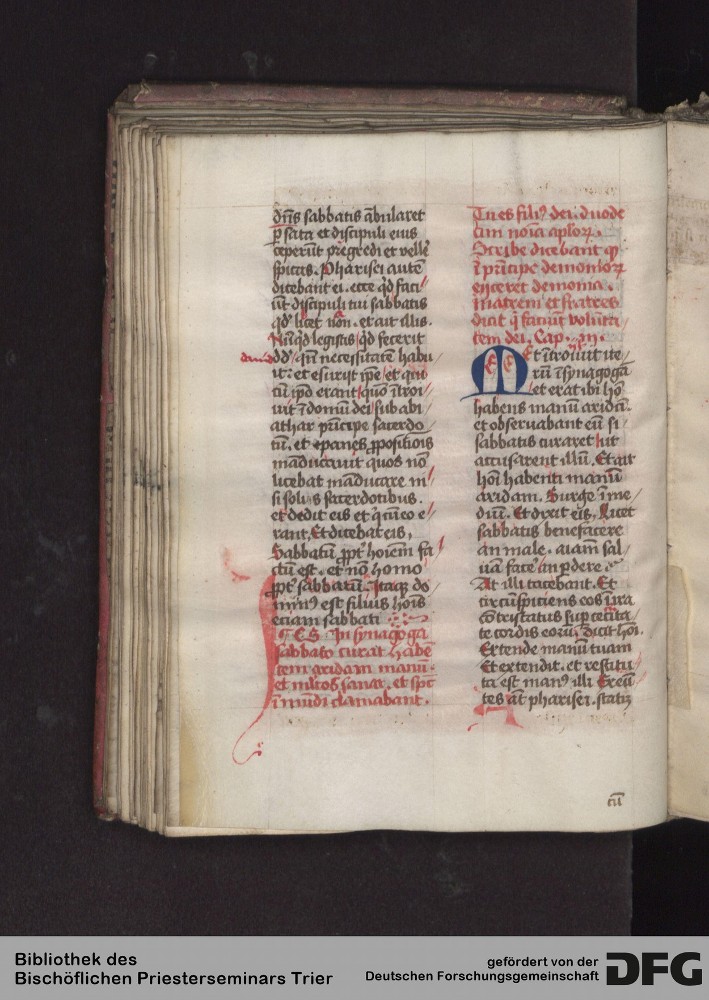 dn̄s sabbatis ābularet
ꝑ sata et discipuli eius
ceperūt p̄gredi et velle᷒
spicas. Pharisei autē
dicebant ei. ecce qd̄ faci
ūt discipuli tui sabbatis
qd̄ licet non. et ait illis.
Nūqd̄ legistis qd̄ fecerit
dauid
dd̄ qn̄ necessitatē habu
it. et esurijt ip̄e et qui
cū ip̄o erant quo ītroi
uit ī domū dei sub abi
athar p̄ncipe sacerdo
tū. et panes ꝓpositiōis
māducauit quos nō
licebat māducare ni
si solis sacerdotibus.
et dedit eis et q̄ cū eo e
rant. Et dicebat eis,
Sabbatū ꝓpt̄ hoīem fa
ctū est. et nō homo
ꝓpt̄ sabbatū. Itaqꝫ do
minꝰ est filius hoīs
eciam sabbati
In synagoga
sabbato curat habē
tem aridam manū.
et mltos sanat. et spc̄
īmūdi clamabant.
Tu es filiꝰ dei. duode
cim noīa aplorꝝ.
Scribe dicebant ꝙ
ī p̄ncipe demoniorꝝ
eijceret demonia.
Matrem et fratres
dicit q̄ faciūt volūta
tem dei. Cap. iij.
Et ītroiuit ite
rū ī synagogā
et erat ibi hō
habens manū aridā.
et obseruabant eū si
sabbatis curaret ut
accusarent illū. Et ait
hoī habenti manū
aridam. Surge ī me
diū. Et dixit eis. Licet
sabbatis benefacere
an male. aīam sal
uā facē an perdere
At illi tacebant. Et
circūspiciens eos ī ira
cōtristatus sup cecita
te cordis eorū. dicit hoī.
Extende manū tuam
Et extendit. et restitu
ta est manꝰ illi Exeū
tes āt pharisei. statī
cū
Bibliothek des
Bischöflichen Priesterseminars Trier
gefördert von der
Deutschen Forschungsgemeinschaft
DFG